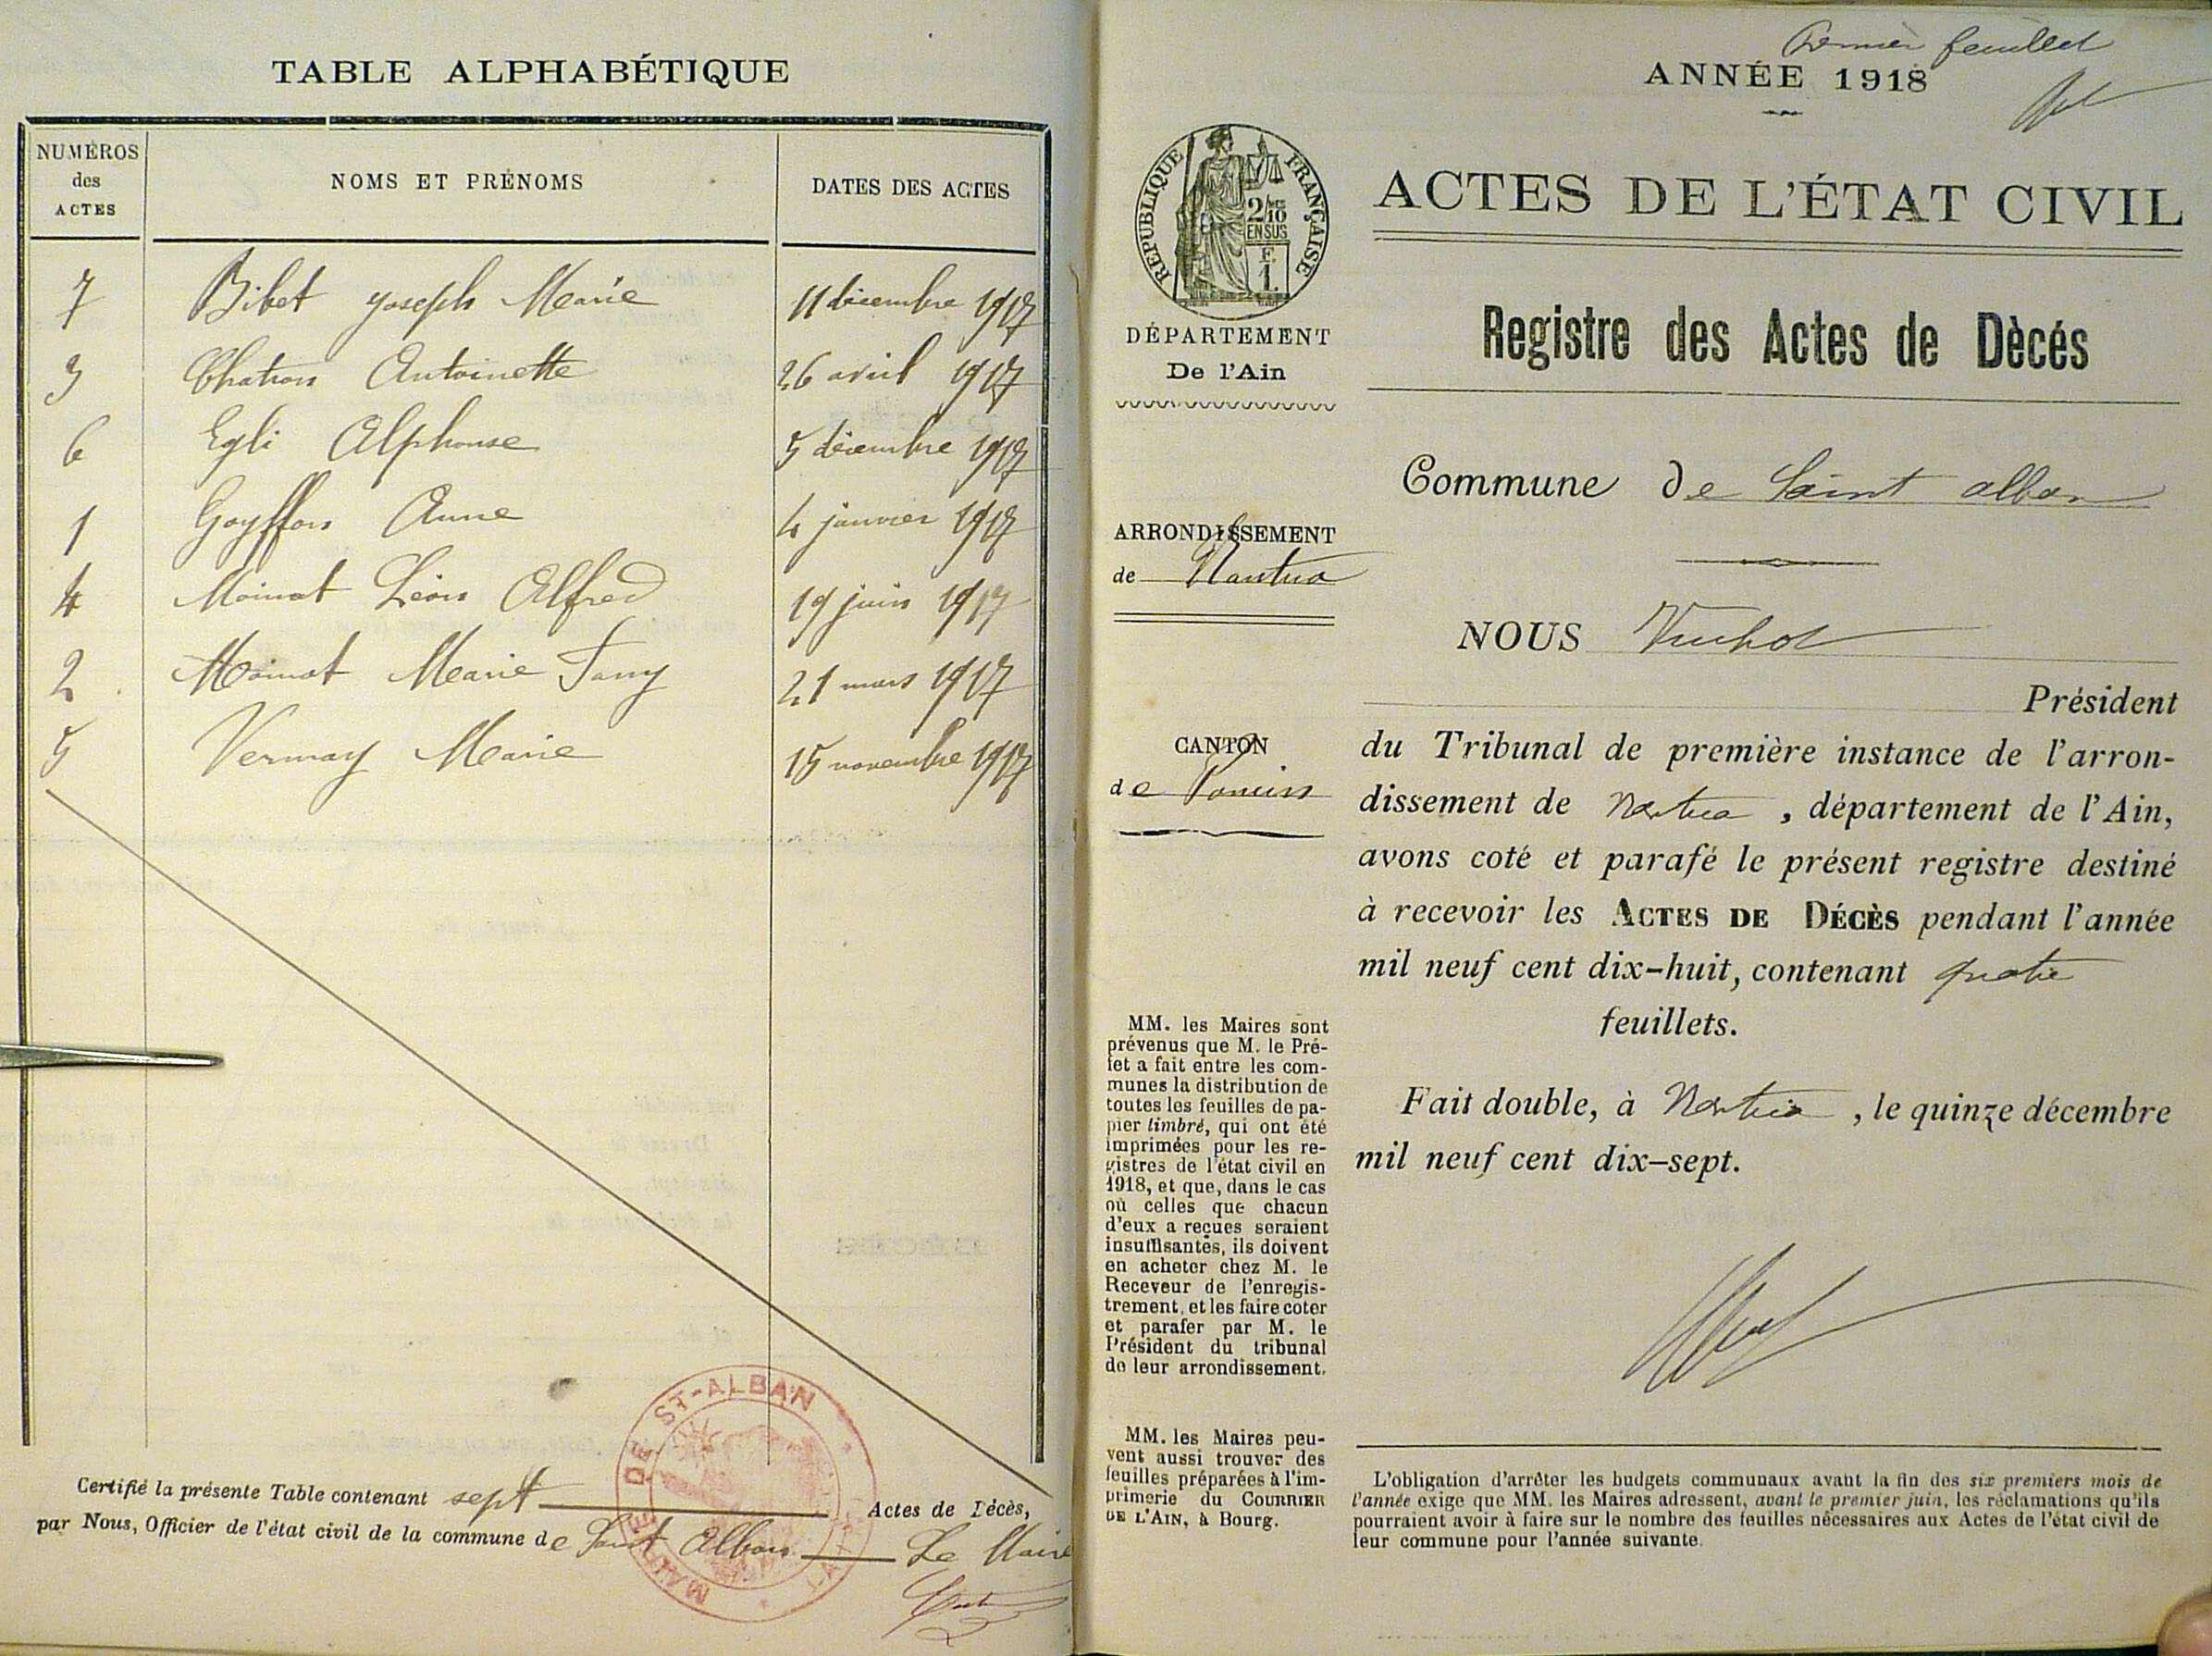 TABLE ALPHABÉTIQUE
NUMÉROS
des
ACTES
NOMS ET PRÉNOMS
DATES DES ACTES
7 Bibet Joseph Marie 11 décembre 1917
3 Chatron Antoinette 26 avril 1917
6 Egli Alphonse 5 décembre 1917
1 Goyffon Anne 4 janvier 1917
4 Moinat Léon Alfred 19 juin 1917
2 Moinat Marie Fany 21 mars 1917
5 Vermay Marie 15 novembre 1917
Certifié la présente Table contenant sept Actes de Décès,
par Nous, Officier de l'état civil de la commune de Saint Alban Le Maire
MAIRIE DE ST-ALBAN
Premier feuillet
ANNÉE 1918
RÉPUBLIQUE FRANÇAISE
2/10
EN SUS
F.
1.
DÉPARTEMENT
De l'Ain
ARRONDISSEMENT
de Nantua
CANTON
de Poncin
MM. les Maires sont
prévenus que M. le Pré-
fet a fait entre les com-
munes la distribution de
toutes les feuilles de pa-
pier timbré, qui ont été
imprimées pour les re-
gistres de l'état civil en
1918, et que, dans le cas
où celles que chacun
d'eux a reçues seraient
insuffisantes, ils doivent
en acheter chez M. le
Receveur de l'enregis-
trement, et les faire coter
et parafer par M. le
Président du tribunal
de leur arrondissement.
MM. les Maires peu-
vent aussi trouver des
feuilles préparées à l'im-
primerie du COURRIER
DE L'AIN, à Bourg.
ACTES DE L'ÉTAT CIVIL
Registre des Actes de Dècés
Commune de Saint alban
NOUS
Président
du Tribunal de première instance de l'arron-
dissement de Nantua, département de l'Ain,
avons coté et parafé le présent registre destiné
à recevoir les ACTES DE DÉCÈS pendant l'année
mil neuf cent dix-huit, contenant quatre
feuillets.
Fait double, à Nantua, le quinze décembre
mil neuf cent dix-sept.
L'obligation d'arrêter les budgets communaux avant la fin des six premiers mois de
l'année exige que MM. les Maires adressent, avant le premier juin, les réclamations qu'ils
pourraient avoir à faire sur le nombre des feuilles nécessaires aux Actes de l'état civil de
leur commune pour l'année suivante.